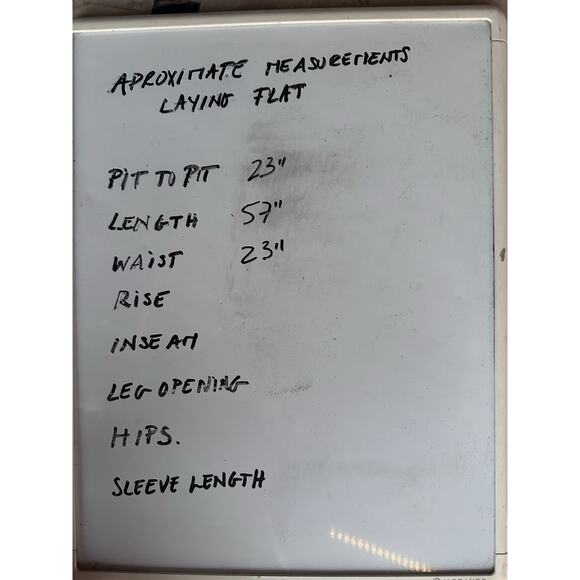 APROXIMATE MEASUREMENTS
LAYING FLAT
PIT TO PIT 23"
LENGTH 57"
WAIST 23"
RISE
INSEAM
LEG OPENING
HIPS.
SLEEVE LENGTH